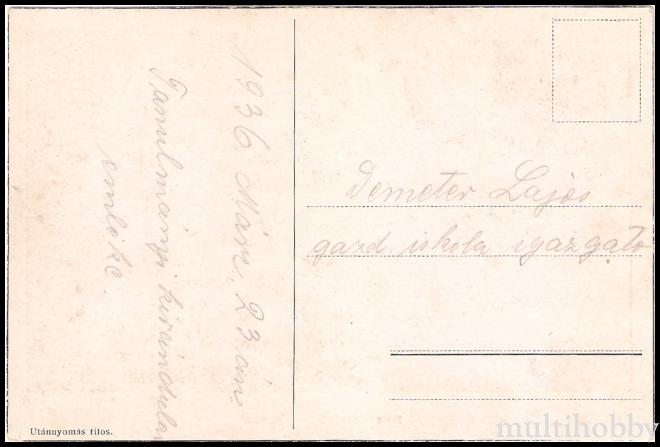 1936 Márc. 23-án
Tanulmányi kirándulás
emléke.
Demeter Lajos
gazd. iskola igazgató
Utánnyomás tilos.
multihobby